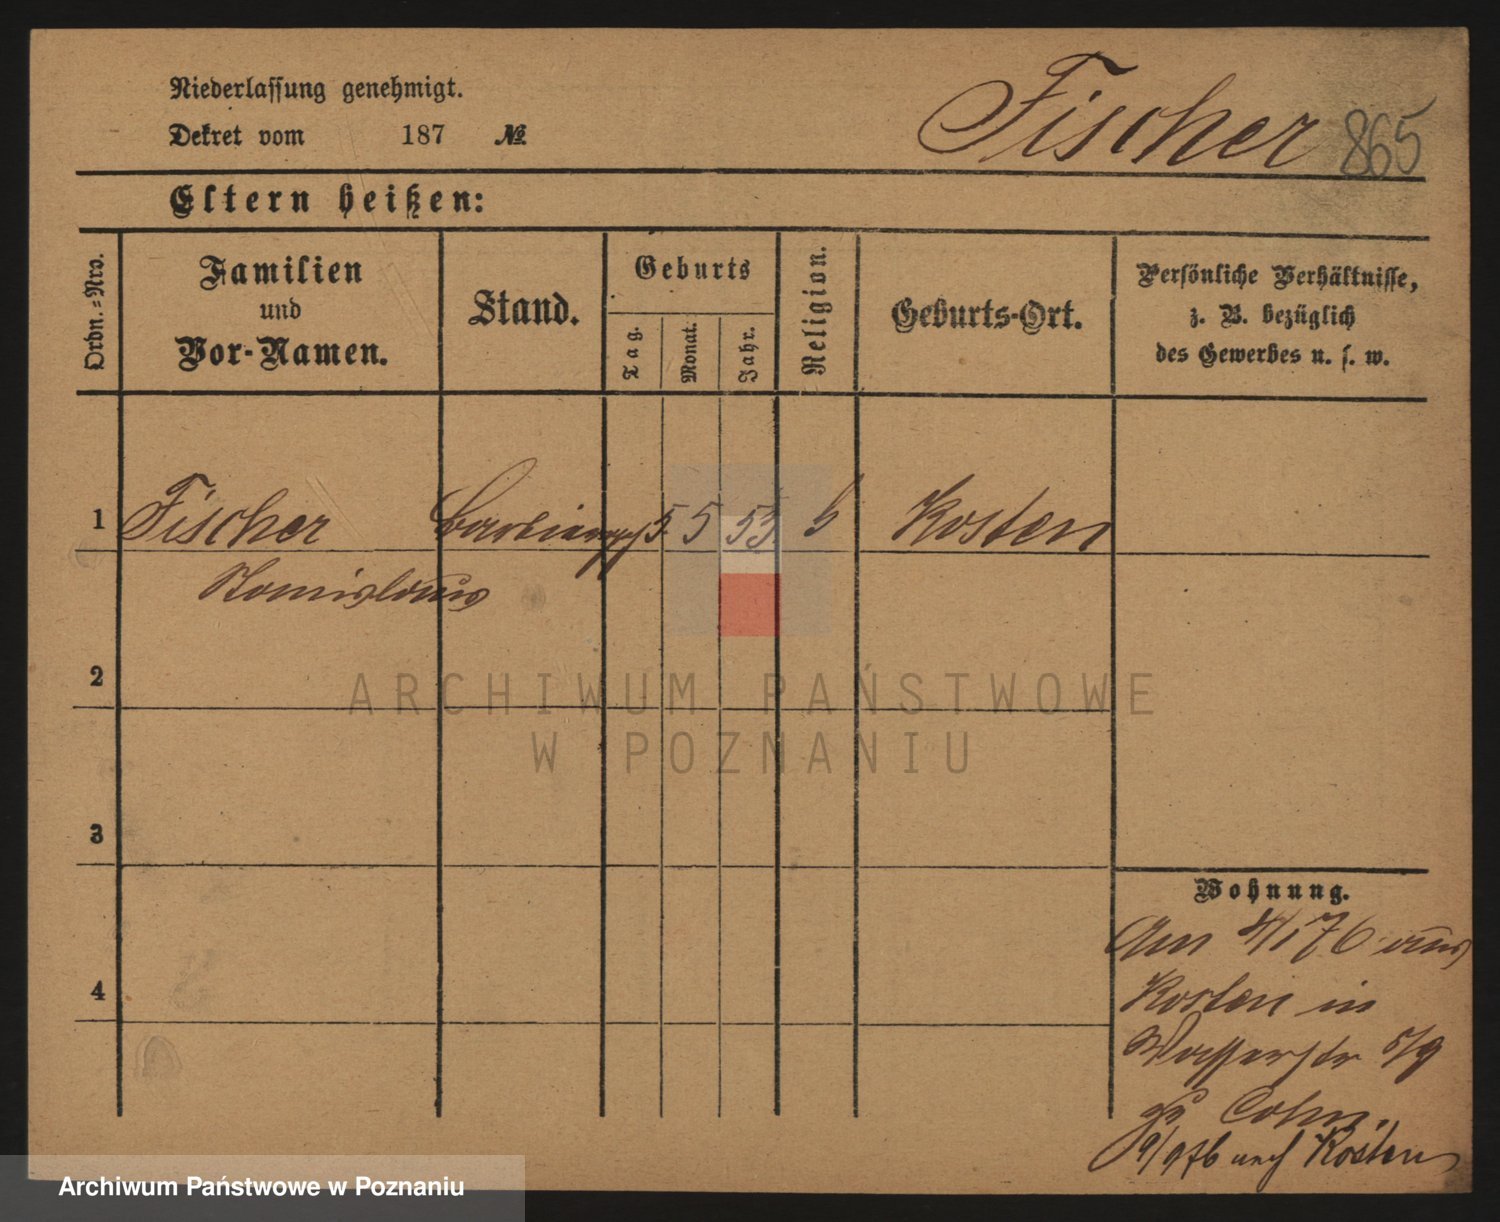 Niederlassung genehmigt.
Fischer 865
Dekret vom 187 №
Eltern heißen:
Ordn.-Nro.
Familien
und
Vor-Namen.
Stand.
Geburts
Tag.
Monat.
Jahr.
Religion.
Geburts-Ort.
Persönliche Verhältnisse,
z. B. bezüglich
des Gewerbes u. s. w.
1 Fischer 5 5 53 Kosten
Stanislaus
2
ARCHIWUM PAŃSTWOWE
W POZNANIU
3
4
Wohnung.
Am 4/1 76 aus
Kosten in
Wasserstr 8/9
zu Cohn.
9/9 76 nach Kosten
Archiwum Państwowe w Poznaniu